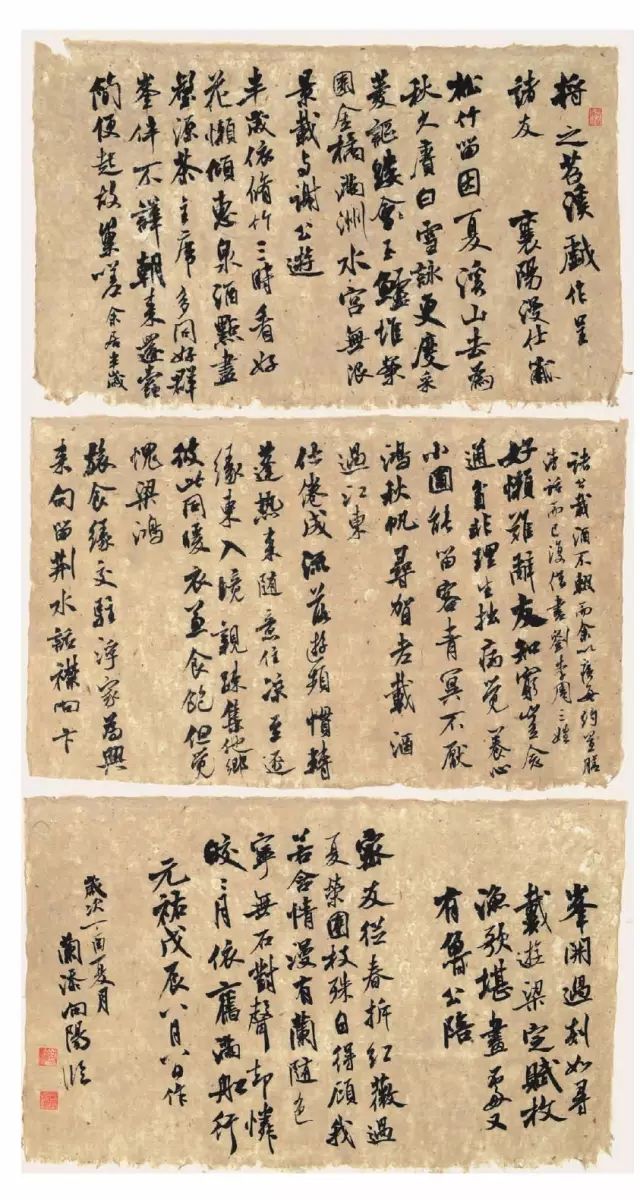 将之苕溪戲作呈
諸友 襄陽漫仕黻
松竹留因夏溪山去為
秋久賡白雪詠更度采
菱謳縷會玉鱸堆案
團金橘滿洲水宮無限
景載与謝公遊
半歲依脩竹三時看好
花懶傾惠泉酒點盡
壑源茶主席多同好群
峯伴不譁朝来還蠹
簡便起故巢嗟余居半歲
諸公載酒不輟而余以疾每約置膳
清話而已復借書劉李周三姓
好懶難辭友知窮豈念
通貧非理生拙病覺養心
小圃能留客青冥不厭
鴻秋帆尋賀老載酒
過江東
仕倦成流落遊頻慣轉
蓬熱来随意住凉至逐
緣東入境親疎集他鄉
彼此同暖衣兼食飽但覺
愧梁鴻
旅食緣交駐浮家為興
来句留荆水話襟向卞
峯開過剡如尋
戴遊梁定賦枚
漁歌堪畫又
有魯公陪
密友從春拆紅薇過
夏榮團枝殊自得顧我
若含情漫有蘭随色
寧無石對聲却憐
皎〻月依舊滿船行
元祐戊辰八月八日作
歲次丁酉夏月
蘭溪向陽臨